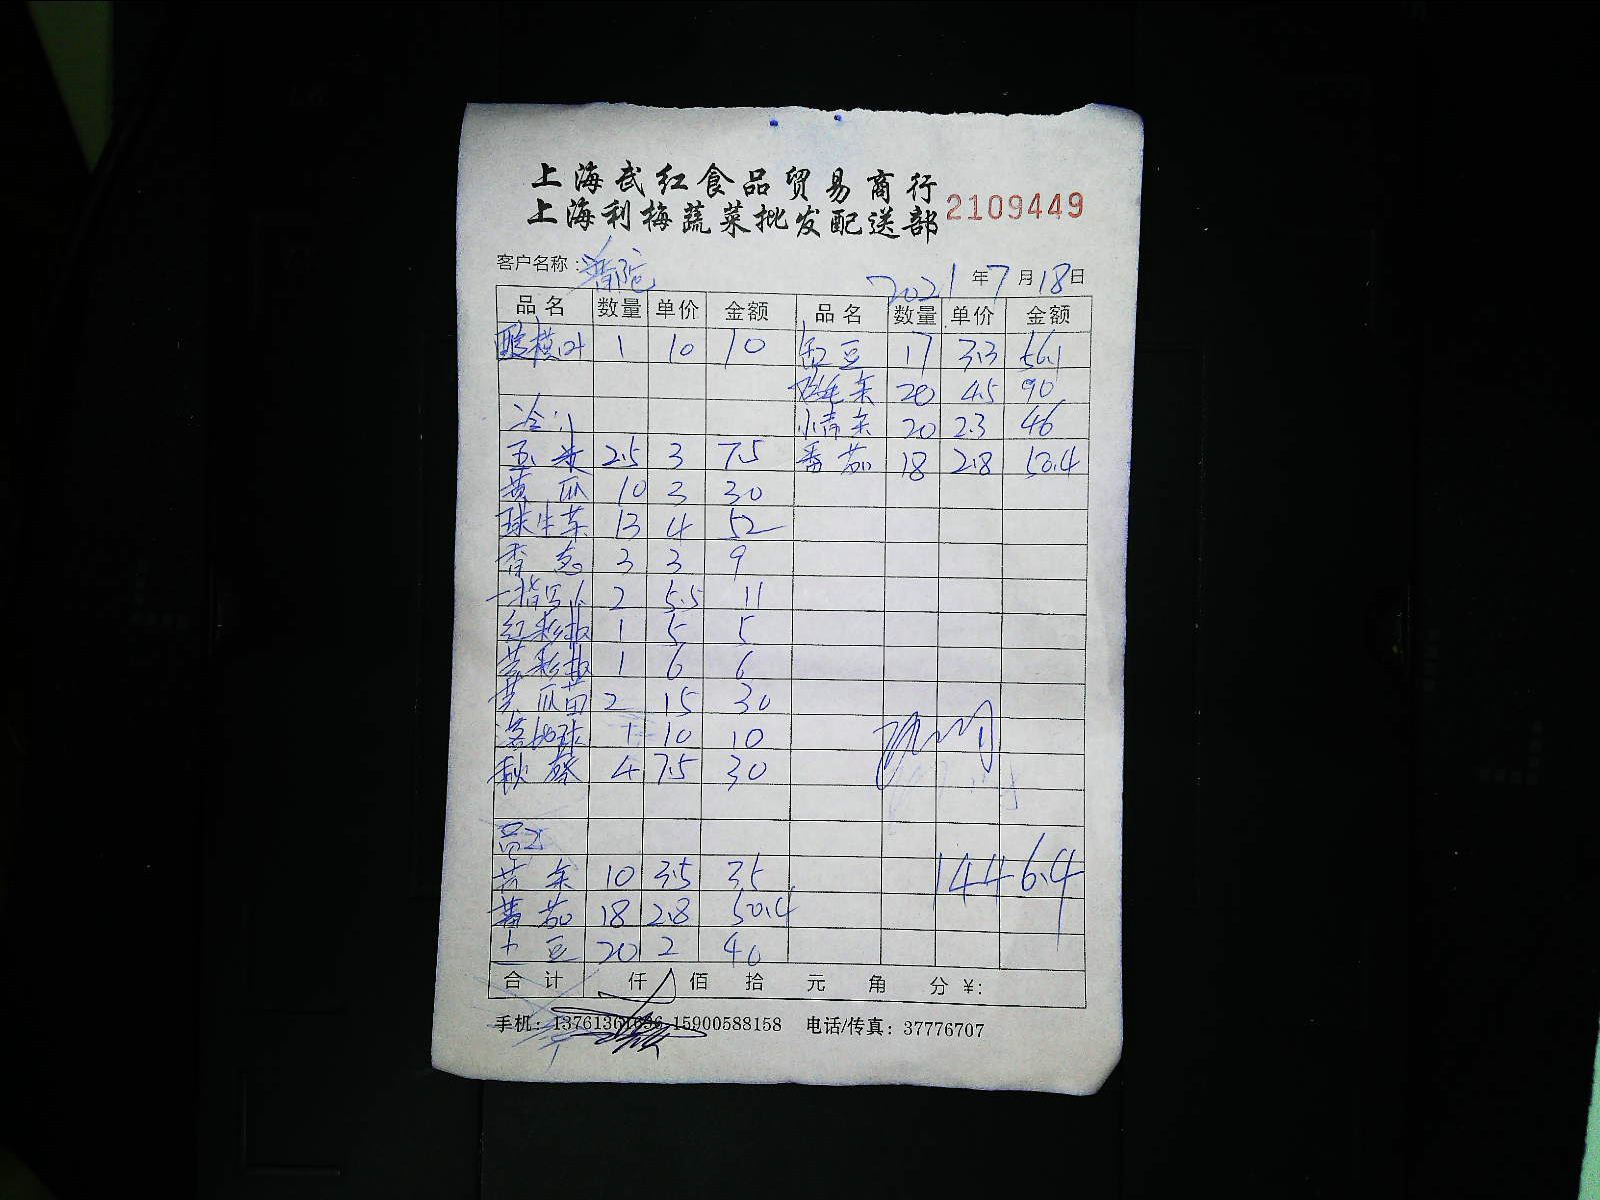 上海武红食品贸易商行
上海利梅蔬菜批发配送部
2109449
客户名称：普陀
2021年7月18日
品名 数量 单价 金额 品名 数量 单价 金额
酸模叶 1 10 10 豆 17 3.3 56.1
鸡毛菜 20 4.5 90
冷 小青菜 20 2.3 46
玉米 2.5 3 7.5 番茄 18 2.8 50.4
黄瓜 10 3 30
球生菜 13 4 52
香葱 3 3 9
一指 2 5.5 11
红彩椒 1 5 5
黄彩椒 1 6 6
黄瓜苗 2 15 30
1 10 10
秋葵 4 7.5 30
菜 10 3.5 35
番茄 18 2.8 50.4
土豆 20 2 40
1446.4
合计 仟 佰 拾 元 角 分 ¥:
手机: 15900588158 电话/传真: 37776707